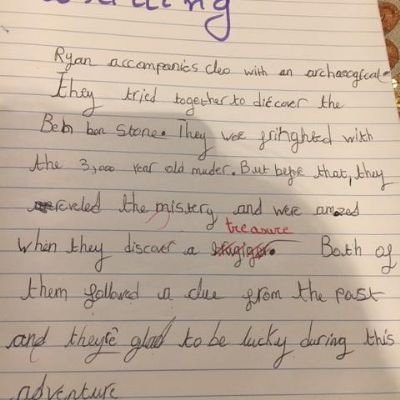 Ryan accompanies cleo with an archaeogical
They tried together to discover the
Ben bon stone. They were fringhted with
the 3,000 year old muder. But before that, they
reveled the mistery and were amazed
treasure
when they discover a
Both of
them followed a clue from the past
and they're glad to be lucky during this
adventure